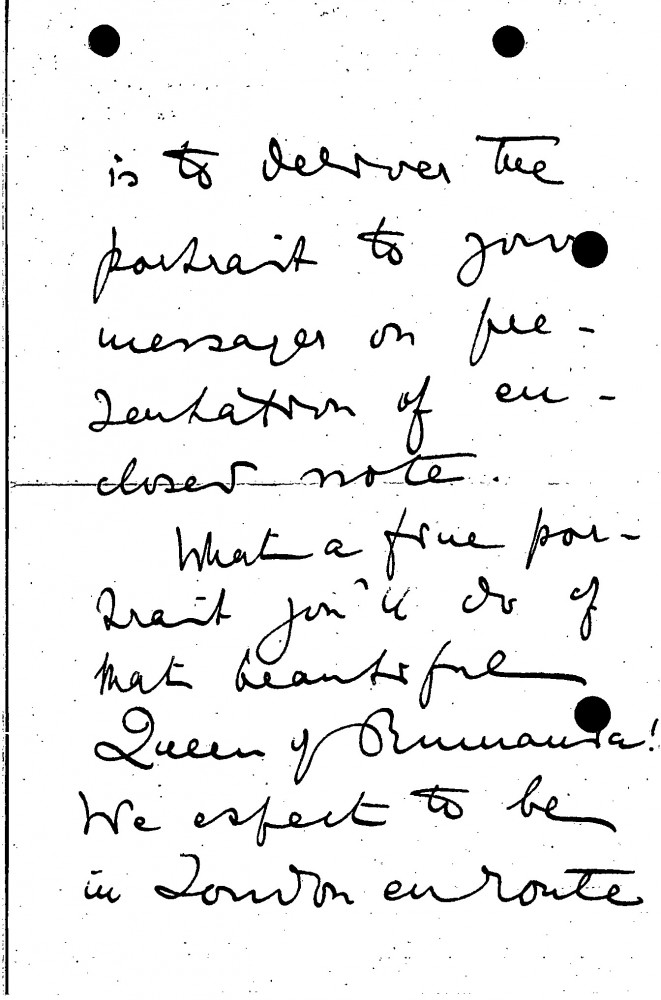 is to deliver the
portrait to your
messager on pre-
sentation of en-
closed note.
What a fine por-
trait you'll do of
that beautiful
Queen of Rumania!
We expect to be
in London en route